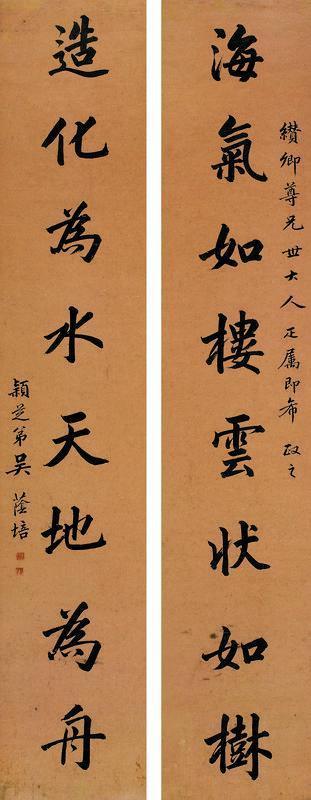 纘卿尊兄世大人正属即希政之
海氣如樓雲狀如樹
造化為水天地為舟
穎芝弟吳蔭培